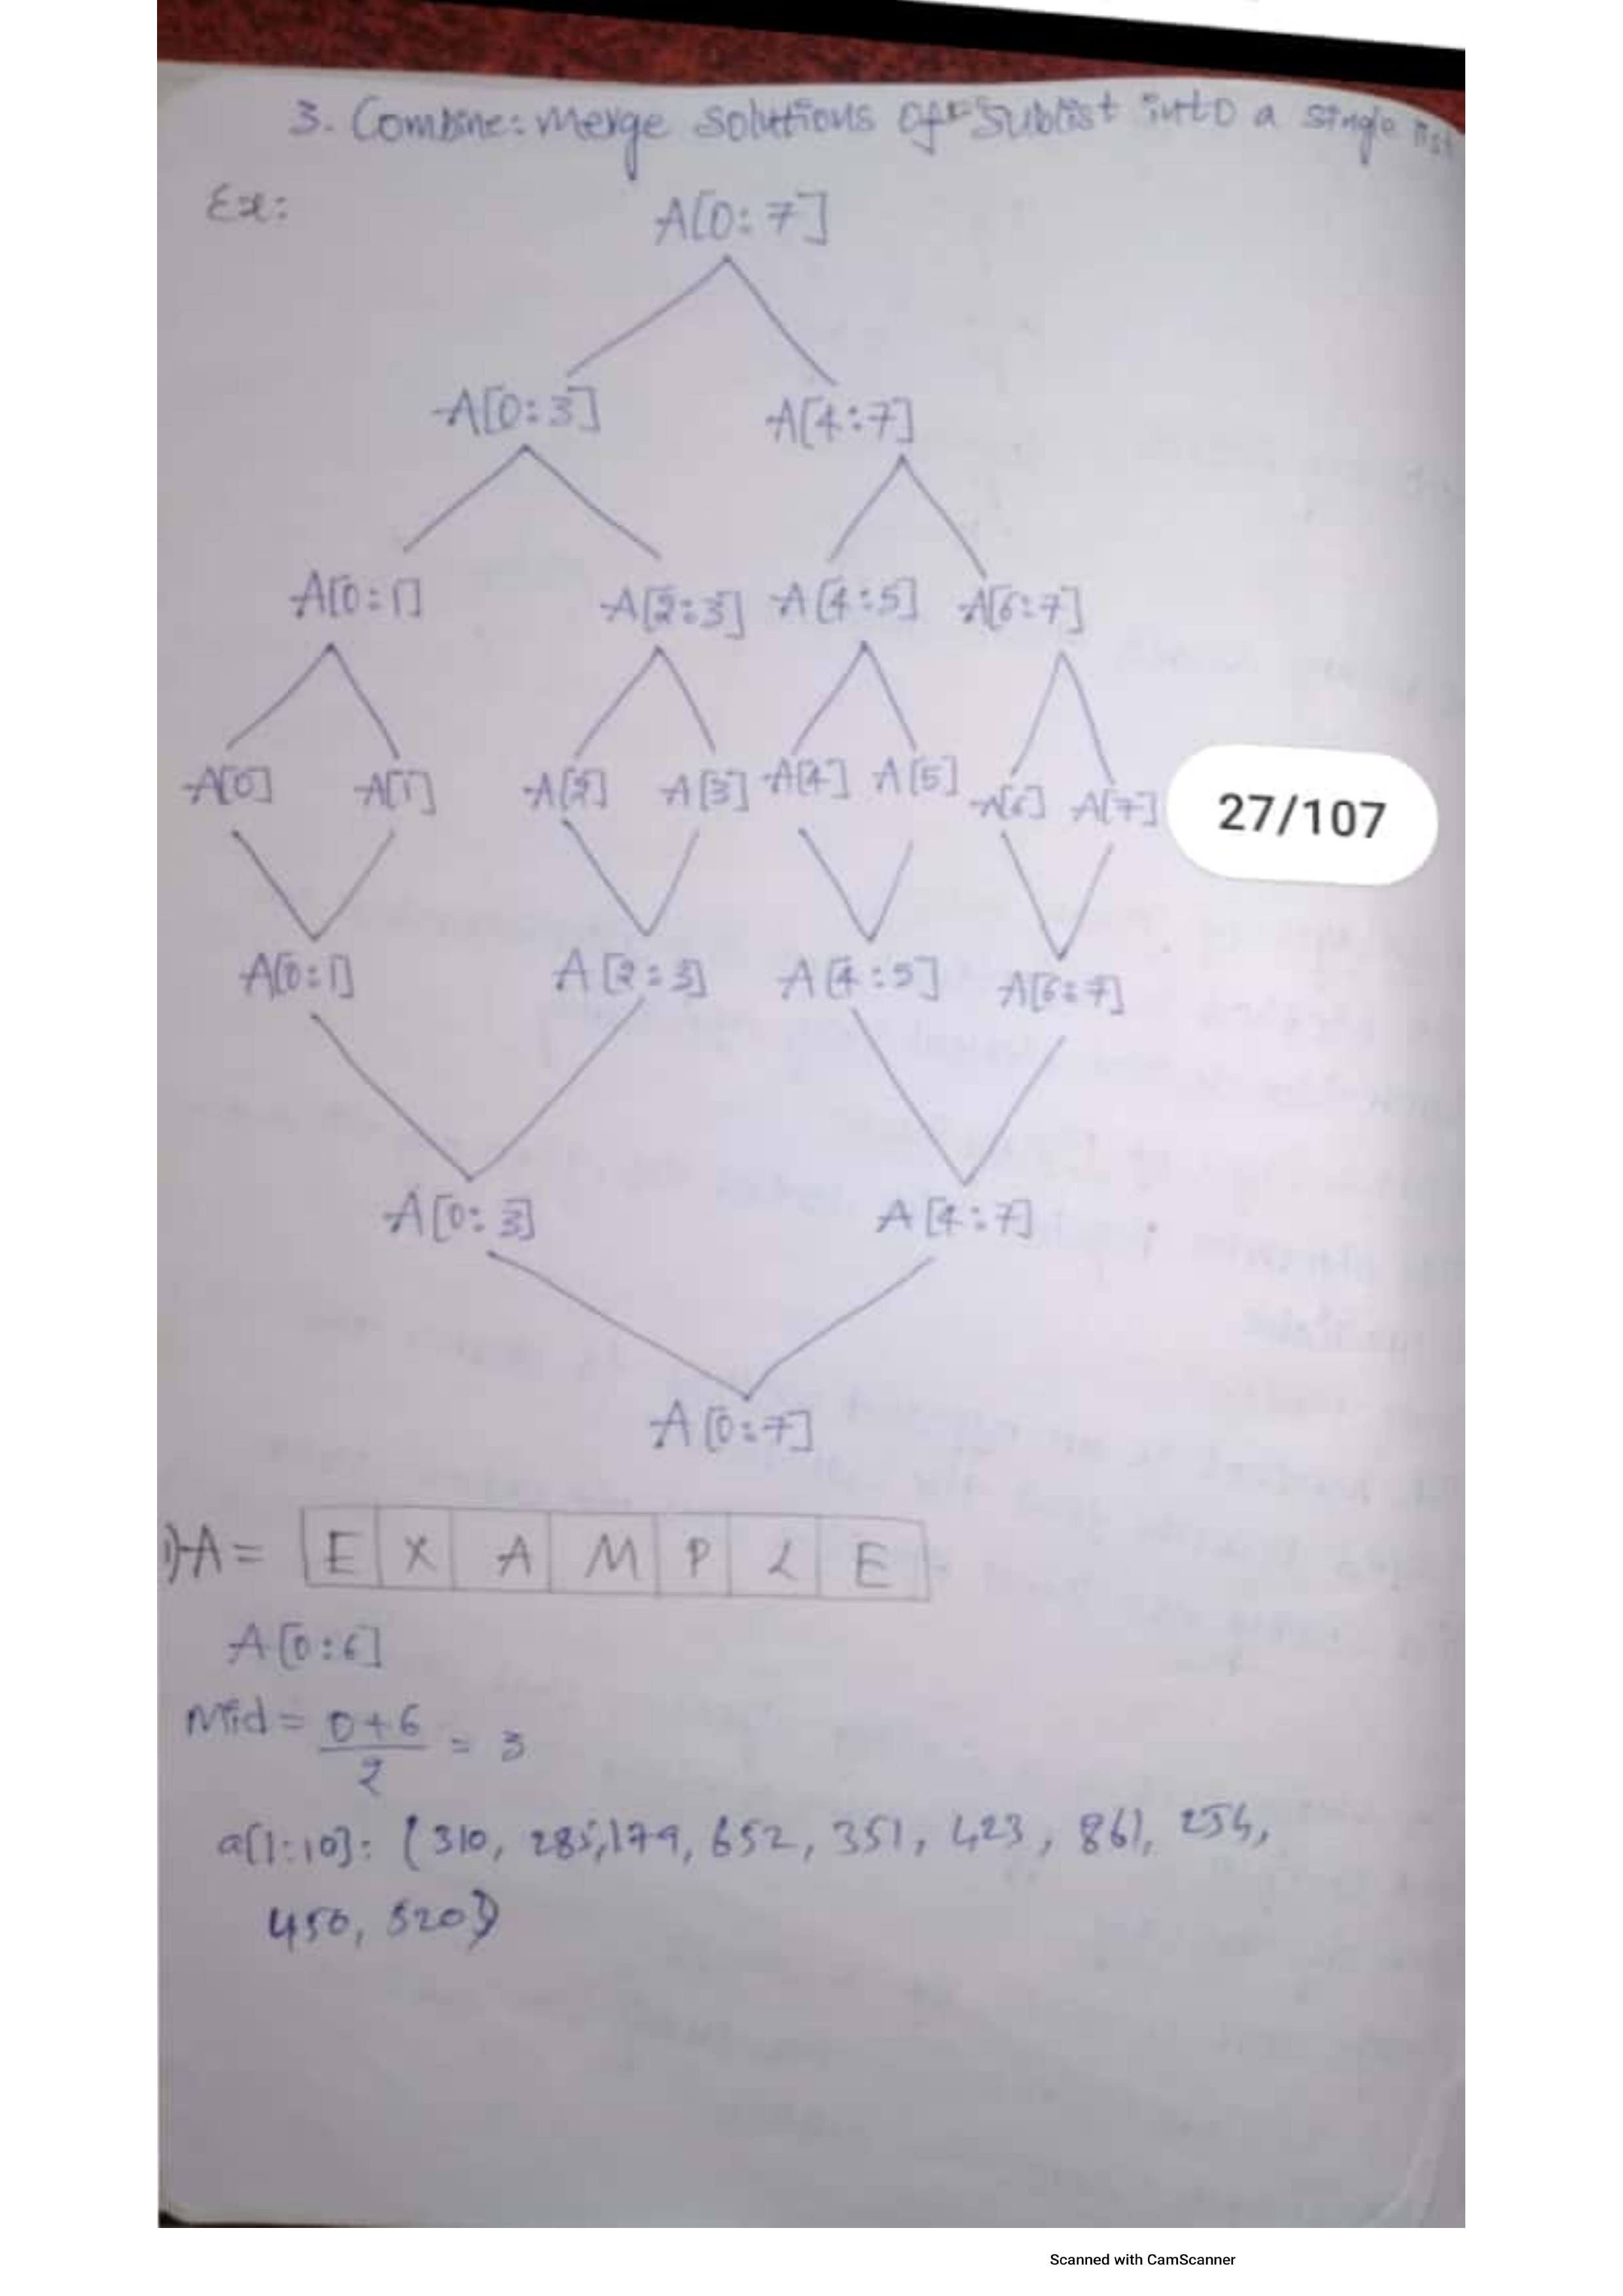 3. Combine: Merge solutions of sublist into a single list
Ex:
A[0:7]
A[0:3] A[4:7]
A[0:1] A[2:3] A[4:5] A[6:7]
A[0] A[1] A[2] A[3] A[4] A[5] A[6] A[7]
27/107
A[0:1] A[2:3] A[4:5] A[6:7]
A[0:3] A[4:7]
A[0:7]
1) A = E X A M P L E
A[0:6]
Mid = 0+6/2 = 3
a[1:10]: (310, 285, 179, 652, 351, 423, 861, 254,
450, 520)
Scanned with CamScanner